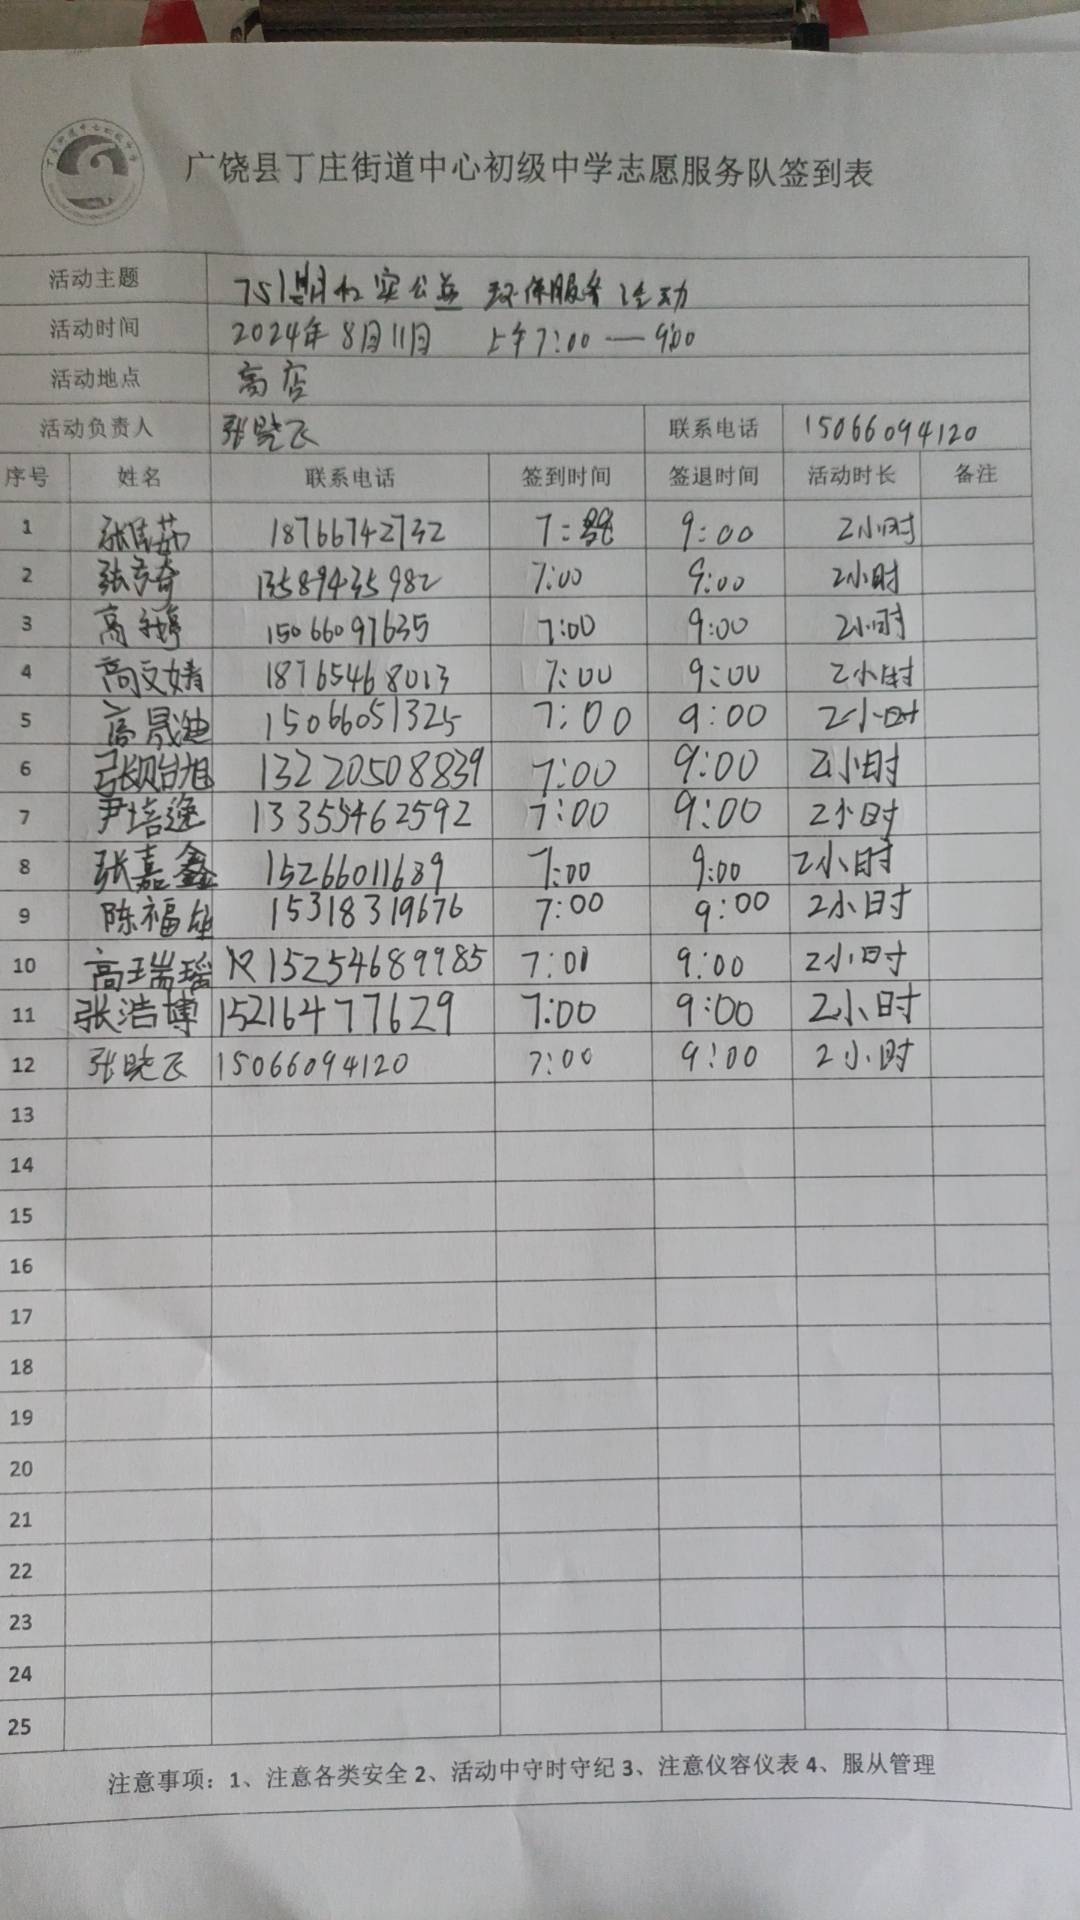 广饶县丁庄街道中心初级中学志愿服务队签到表
活动主题 751期 公益 环保服务活动
活动时间 2024年8月11日 上午7:00—9:00
活动地点 高店
活动负责人 张晓飞 联系电话 15066094120
序号 姓名 联系电话 签到时间 签退时间 活动时长 备注
1 18766742732 7: 9:00 2小时
2 13589435982 7:00 9:00 2小时
3 高 15066097635 7:00 9:00 2小时
4 高文婧 18765468013 7:00 9:00 2小时
5 高晟迪 15066051325 7:00 9:00 2小时
6 张贻旭 13220508839 7:00 9:00 2小时
7 尹培逸 13355462592 7:00 9:00 2小时
8 张嘉鑫 15266011689 7:00 9:00 2小时
9 陈福 15318319676 7:00 9:00 2小时
10 高瑞瑶 15254689985 7:00 9:00 2小时
11 张浩博 15216477629 7:00 9:00 2小时
12 张晓飞 15066094120 7:00 9:00 2小时
13
14
15
16
17
18
19
20
21
22
23
24
25
注意事项：1、注意各类安全 2、活动中守时守纪 3、注意仪容仪表 4、服从管理